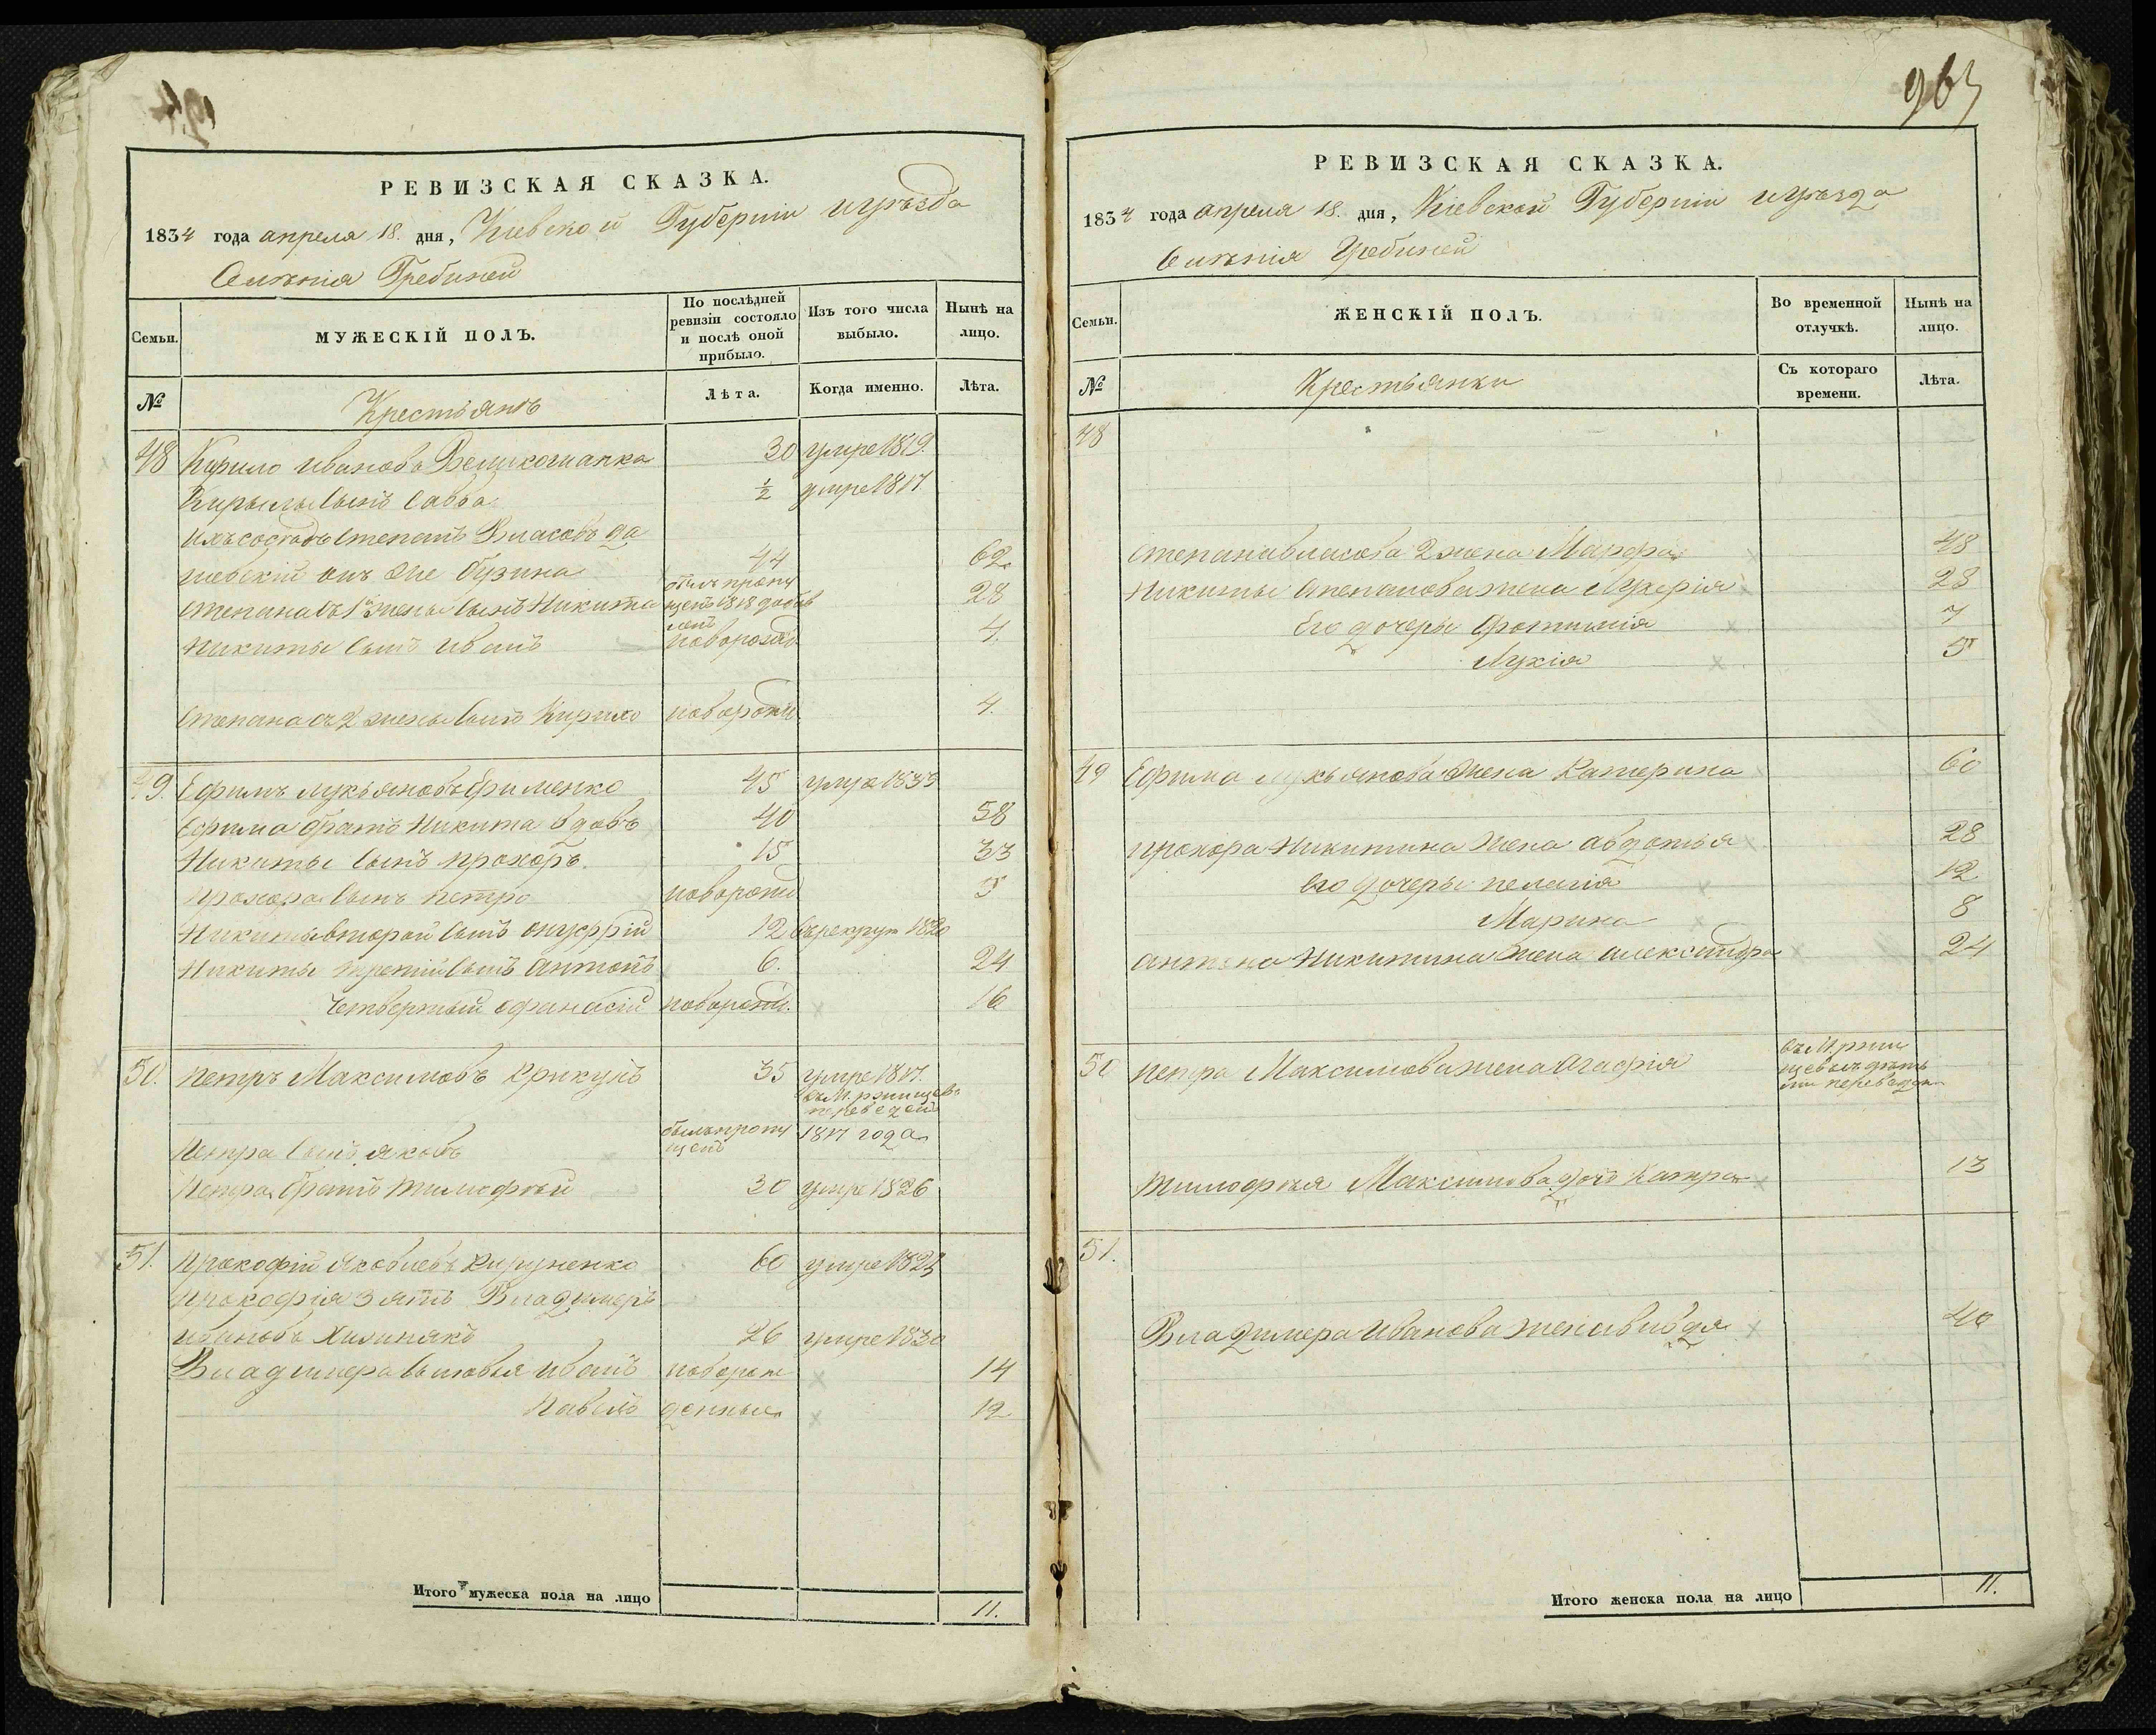 РЕВИЗСКАЯ СКАЗКА.
1834 года апреля 18. дня, Киевской Губернiи и уѣзда
Селенiя Гребиней
Семьи.
МУЖЕСКIЙ ПОЛЪ.
По послѣдней ревизiи состояло и послѣ оной прибыло.
Изъ того числа выбыло.
Нынѣ на лицо.
№
Крестьянъ
Лѣта.
Когда именно.
Лѣта.
48 Кирило Иванова Великошапка 30 умре 1819.
Кирылы сынъ Савва ½ умре 1817
Степанъ Власовъ
онъ же Бузина 44 62
Степана съ 1й жены сынъ Никита былъ пропущенъ 1818 добавленъ 28
Никиты сынъ Иванъ новорожд 4.
Степана съ 2 жены сынъ Кирило новорожд 4.
49. Ефимъ Лукьяновъ Ефименко 45 умре 1833
Ефима братъ Никита вдовъ 40 58
Никиты сынъ Прохоръ. 15 33
Прохора сынъ Петро новорожд 5
Никиты второй сынъ Онуфрiй 12 въ рекрут 1820
Никиты третiй сынъ Антонъ 6. 24
Четвертый Афанасiй новорожд. 16
50. Петръ Максимовъ Крикунъ 35 умре 1817.
въ М. Ржищевъ переведенъ
Петра сынъ Яковъ былъ пропущенъ 1817 года
Петра братъ Тимофѣй 30 умре 1826
51. Прокофiй Яковлевъ 60 умре 1825
Прокофiя зять Владимеръ
Ивановъ 26 умре 1830
Владимера сыновья Иванъ новорож 14
Павелъ денные 12
Итого мужеска пола на лицо 11.
965
РЕВИЗСКАЯ СКАЗКА.
1834 года апреля 18. дня, Кiевской Губернiи и уѣзда
Селенiя Гребиней
Семьи.
ЖЕНСКIЙ ПОЛЪ.
Во временной отлучкѣ.
Нынѣ на лицо.
№
Крестьянки
Съ котораго времени.
Лѣта.
48
Степана Власова 2 жена Марфа 48
Никиты Степанова жена Лукерiя 28
Его дочеры Фотинiя 7
Лукiя 5
49 Ефима Лукьянова жена Катерина 60
Прохора Никитина жена Авдотья 28
Его дочеры Пелагiя 12
Марина 8
Антона Никитина жена Александра 24
50 Петра Максимова жена Агафiя въ М. Ржищевъ съ дѣтьми переведена
Тимофѣя Максимова дочь Катра 13
51.
Владимера Иванова жена Явдя 40
Итого женска пола на лицо 11.